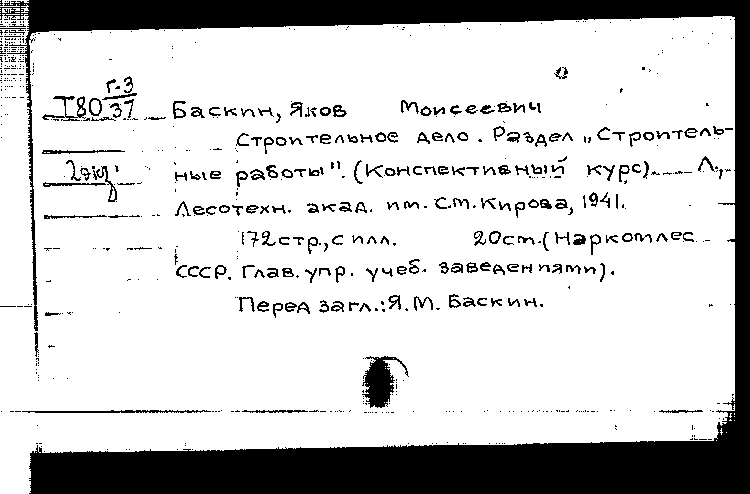 Т80 Г-3/37
Баскин, Яков Моисеевич
Строительное дело. Раздел „Строитель-
2 экз. ные работы". (Конспективный курс). Л.,
Лесотехн. акад. им. С.М. Кирова, 1941.
172 стр., с илл. 20 см. (Наркомлес
СССР. Глав. упр. учеб. заведениями).
Перед загл.: Я.М. Баскин.